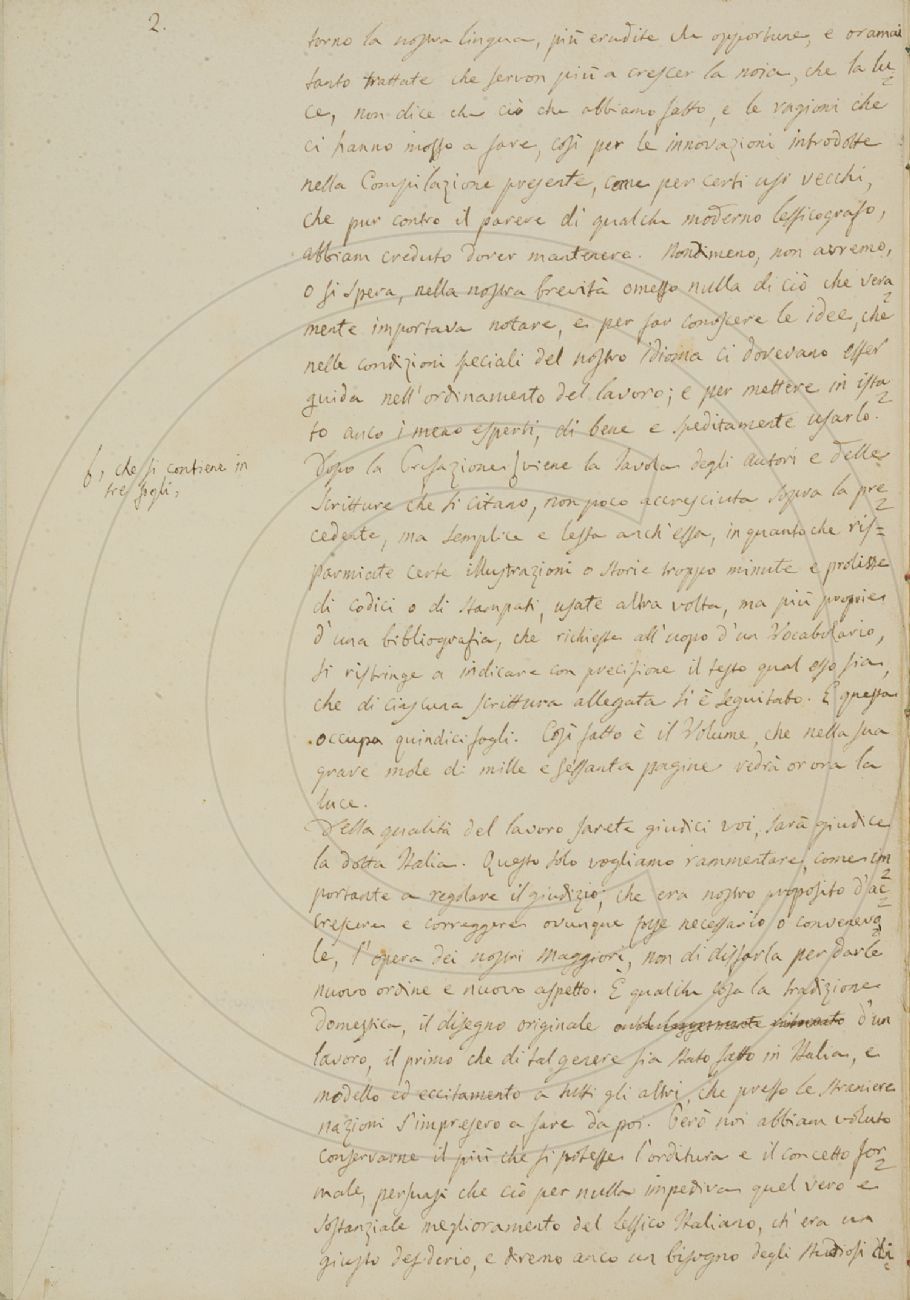 2.
torno la nostra lingua, più erudite che opportune, e oramai
tanto trattate che servon più a crescer la noia, che la lu=
ce, non dice che ciò che abbiamo fatto, e le ragioni che
ci hanno mosso a fare, così per le innovazioni introdotte
nella Compilazione presente, come per certi usi vecchi,
che pur contro il parere di qualche moderno lessicografo,
abbiam creduto dover mantenere. Nondimeno, non avremo,
o si spera, nella nostra brevità omesso nulla di ciò che vera=
mente importava notare, e per far conoscere le idee, che
nelle condizioni speciali del nostro idioma ci dovevano esser
guida nell'ordinamento del lavoro; e per mettere in ista=
to anco i meno esperti, di bene e speditamente usarlo.
Dopo la Prefazione viene la Tavola degli autori e delle
f, che si contiene in
tre fogli,
Scritture che si citano, non poco accresciuta sopra la pre=
cedente, ma semplice e lesta anch'essa, in quanto che ris=
parmiate certe illustrazioni o storie troppo minute e prolisse
di codici o di stampati, usate altra volta, ma più proprie
d'una bibliografia, che richieste all'uopo d'un Vocabolario,
si ristringe a indicare con precisione il testo qual esso sia,
che di ciascuna scrittura allegata si è seguitato. E questa
occupa quindici fogli. Così fatto è il Volume, che nella sua
grave mole di mille e sessanta pagine vedrà or ora la
luce.
Della qualità del lavoro sarete giudici voi, sarà giudice
la dotta Italia. Questo solo vogliamo rammentare, come im=
portante a regolare il giudizio, che era nostro proposito d'ac=
crescere e correggere ovunque fosse necessario o convenevo=
le, l'opera dei nostri maggiori, non di disfarla per darle
nuovo ordine e nuovo aspetto. È qualche cosa la tradizione
domestica, il disegno originale d'un
lavoro, il primo che di tal genere sia stato fatto in Italia, e
modello ed eccitamento a tutti gli altri, che presso le straniere
nazioni s'impresero a fare da poi. Però noi abbiam voluto
conservarne il più che si potesse l'orditura e il concetto for=
male, persuasi che ciò per nulla impediva quel vero e
sostanziale miglioramento del lessico Italiano, ch'era un
giusto desiderio, e diremo anco un bisogno degli studiosi di=